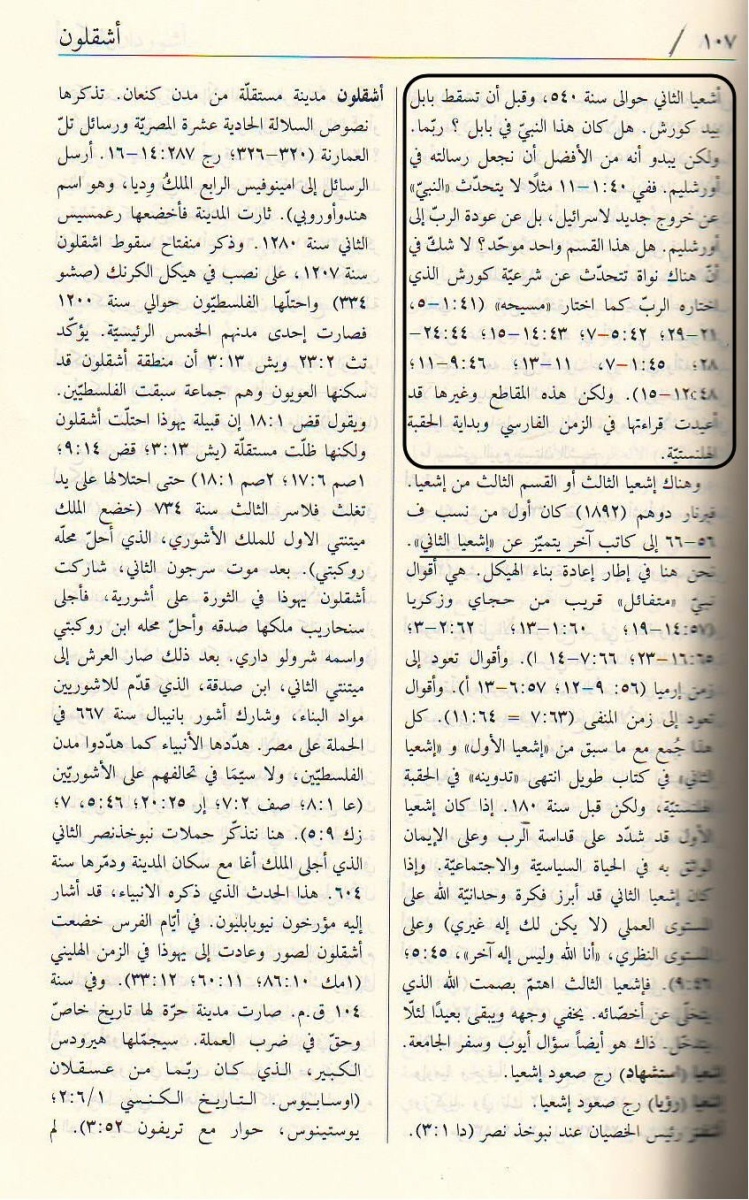 ١٠٧
أشقلون
أشعيا الثاني حوالى سنة ٥٤٠، وقبل أن تسقط بابل
بيد كورش. هل كان هذا النبيّ في بابل ؟ ربّما.
ولكن يبدو أنه من الأفضل أن نجعل رسالته في
أورشليم. ففي ٤٠:١-١١ مثلًا لا يتحدّث «النبيّ»
عن خروج جديد لاسرائيل، بل عن عودة الربّ إلى
أورشليم. هل هذا القسم واحد موحّد؟ لا شكّ في
أنّ هناك نواة تتحدّث عن شرعيّة كورش الذي
اختاره الربّ كما اختار «مسيحه» (٤١:١-٥،
٢١-٢٩؛ ٤٢:٥-٧؛ ٤٣:١٤-١٥؛ ٤٤:٢٤-
٢٨؛ ٤٥:١-٧، ١١-١٣؛ ٤٦:٩-١١؛
٤٨:١٢-١٥). ولكن هذه المقاطع وغيرها قد
أعيدت قراءتها في الزمن الفارسي وبداية الحقبة
الهلنستيّة.
وهناك إشعيا الثالث أو القسم الثالث من إشعيا.
برنار دوهم (١٨٩٢) كان أول من نسب ف
٥٦-٦٦ إلى كاتب آخر يتميّز عن «إشعيا الثاني».
نحن هنا في إطار إعادة بناء الهيكل. هي أقوال
نبيّ «متفائل» قريب من حجاي وزكريا
(٥٧:١٤-١٩؛ ٦٠:١-١٣؛ ٦٢:٢-٣؛
٦٥:١٦-٢٣؛ ٦٦:٧-١٤ ا). وأقوال تعود إلى
زمن إرميا (٥٦: ٩-١٢؛ ٥٧:٦-١٣ أ). وأقوال
تعود إلى زمن المنفى (٦٣:٧ = ٦٤:١١). كل
هذا جُمع مع ما سبق من «إشعيا الأول» و «إشعيا
الثاني» في كتاب طويل انتهى «تدوينه» في الحقبة
الهلنستيّة، ولكن قبل سنة ١٨٠. إذا كان إشعيا
الأول قد شدّد على قداسة الرب وعلى الإيمان
الوثق به في الحياة السياسيّة والاجتماعيّة. وإذا
كان إشعيا الثاني قد أبرز فكرة وحدانيّة الله على
المستوى العملي (لا يكن لك إله غيري) وعلى
المستوى النظري، «أنا الله وليس إله آخر»، ٤٥:٥؛
٤٦:٩). فإشعيا الثالث اهتمّ بصمت الله الذي
يتخلّى عن أخصّائه. يخفي وجهه ويبقى بعيدًا لئلّا
يتدخّل. ذاك هو أيضاً سؤال أيوب وسفر الجامعة.
إشعيا (استشهاد) رج صعود إشعيا.
إشعيا (رؤيا) رج صعود إشعيا.
أشفنز رئيس الخصيان عند نبوخذ نصر (دا ١:٣).
أشقلون مدينة مستقلّة من مدن كنعان. تذكرها
نصوص السلالة الحادية عشرة المصريّة ورسائل تلّ
العمارنة (٣٢٠-٣٢٦؛ رج ٢٨٧:١٤-١٦. أرسل
الرسائل إلى امينوفيس الرابع الملكُ وِديا، وهو اسم
هندوأوروبي). ثارت المدينة فأخضعها رعمسيس
الثاني سنة ١٢٨٠. وذكر منفتاح سقوط اشقلون
سنة ١٢٠٧، على نصب في هيكل الكرنك (صشو
٣٣٤) واحتلّها الفلسطيّون حوالي سنة ١٢٠٠
فصارت إحدى مدنهم الخمس الرئيسيّة. يؤكّد
تث ٢:٢٣ ويش ١٣:٣ أن منطقة أشقلون قد
سكنها العويون وهم جماعة سبقت الفلسطيّين.
ويقول قض ١:١٨ إن قبيلة يهوذا احتلّت أشقلون
ولكنها ظلّت مستقلّة (يش ١٣:٣؛ قض ١٤:٩؛
١صم ٦:١٧؛ ٢صم ١:١٨) حتى احتلالها على يد
تغلث فلاسر الثالث سنة ٧٣٤ (خضع الملك
ميتنتي الاول للملك الأشوري، الذي أحلّ محلّه
روكبتي). بعد موت سرجون الثاني، شاركت
أشقلون يهوذا في الثورة على أشورية، فأجلى
سنحاريب ملكها صدقه وأحلّ محله ابن روكبتي
واسمه شرولو داري. بعد ذلك صار العرش إلى
ميتنتي الثاني، ابن صدقة، الذي قدّم للاشوريين
مواد البناء، وشارك أشور بانيبال سنة ٦٦٧ في
الحملة على مصر. هدّدها الأنبياء كما هدّدوا مدن
الفلسطيّين، ولا سيّمَا في تحالفهم على الأشوريّين
(عا ١:٨؛ صف ٢:٧؛ إر ٢٥:٢٠؛ ٤٦:٥، ٧؛
زك ٩:٥). هنا نتذكّر حملات نبوخذنصر الثاني
الذي أجلى الملك أغا مع سكان المدينة ودمّرها سنة
٦٠٤. هذا الحدث الذي ذكره الانبياء، قد أشار
إليه مؤرخون نيوبابليون. في أيّام الفرس خضعت
أشقلون لصور وعادت إلى يهوذا في الزمن الهليني
(١مك ١٠:٨٦؛ ١١:٦٠؛ ١٢:٣٣). وفي سنة
١٠٤ ق.م. صارت مدينة حرّة لها تاريخ خاصّ
وحقّ في ضرب العملة. سيجمّلها هيرودس
الكبير، الذي كان ربّما من عسقلان
(اوسابيوس. التاريخ الكنسي ١/٦:٢؛
يوستينوس، حوار مع تريفون ٥٢:٣). لم